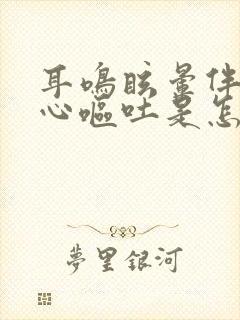 耳鳴眩暈伴
心嘔吐是怎
夢里銀河